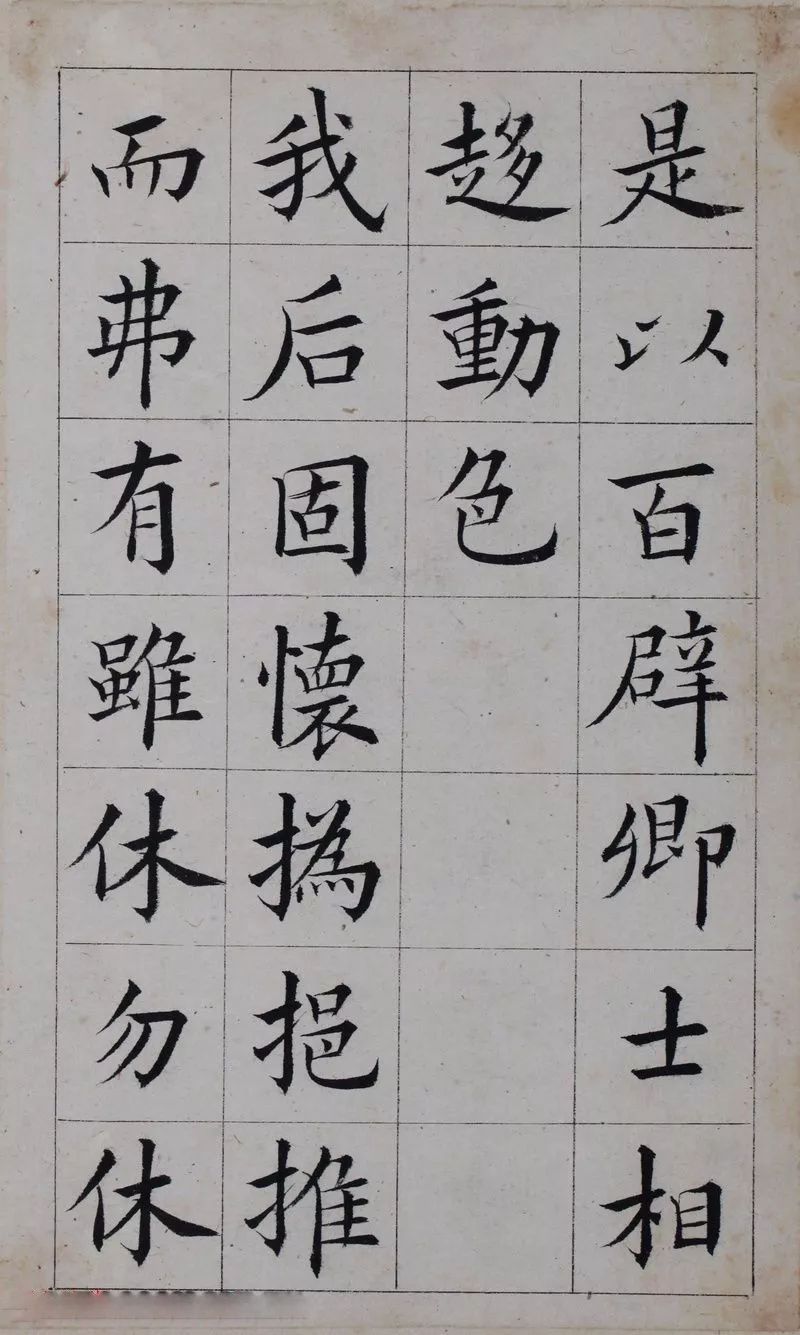 是以百辟卿士相
趍動色
我后固懷撝挹推
而弗有雖休勿休